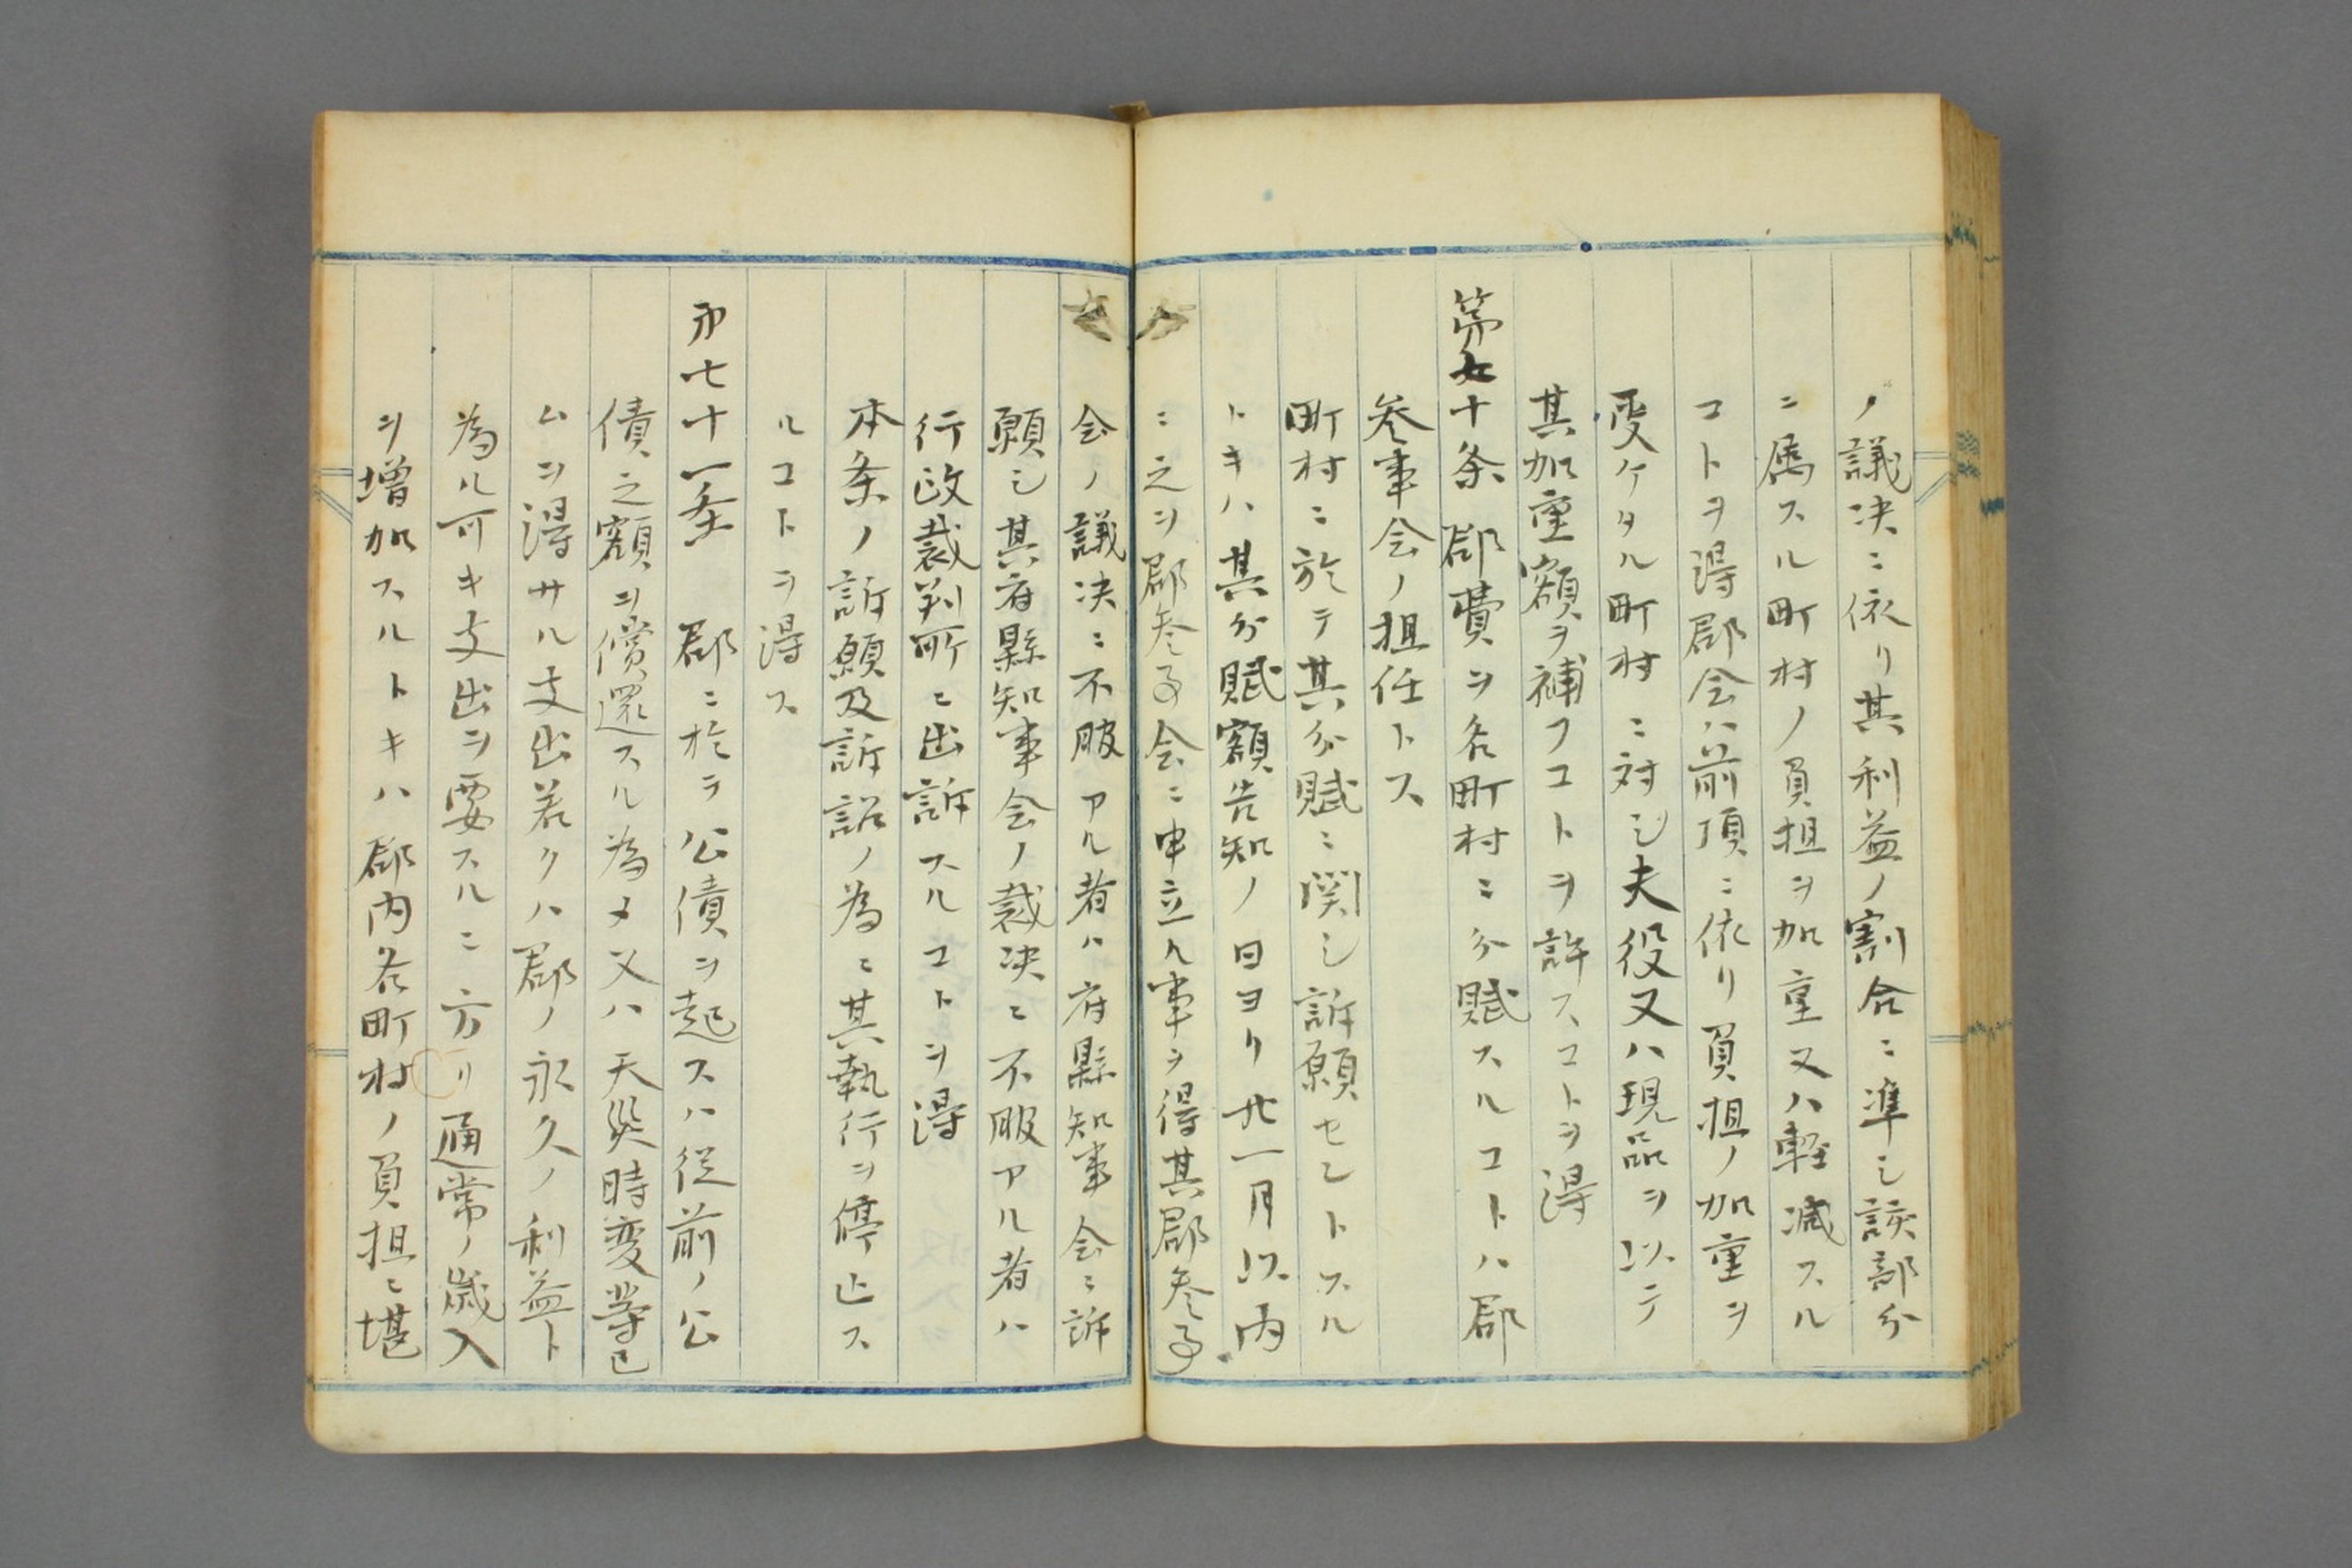 ノ議决ニ依リ其利益ノ割合ニ準シ該部分
ニ属スル町村ノ負担ヲ加重又ハ軽减スル
コトヲ得郡会ハ前項ニ依リ負担ノ加重ヲ
受ケタル町村ニ対シ夫役又ハ現品ヲ以テ
其加重額ヲ補フコトヲ許スコトヲ得
第七十条 郡費ヲ各町村ニ分賦スルコトハ郡
参事会ノ担任トス
町村ニ於テ其分賦ニ関シ訴願セントスル
トキハ其分賦額告知ノ日ヨリ廿一月以内
ニ之ヲ郡参事会ニ申立ル事ヲ得其郡参事
会ノ議决ニ不服アル者ハ府縣知事会ニ訴
願シ其府縣知事会ノ裁决ニ不服アル者ハ
行政裁判所ニ出訴スルコトヲ得
本条ノ訴願及訴訟ノ為ニ其執行ヲ停止ス
ルコトヲ得ス
第七十一条 郡ニ於テ公債ヲ起スハ従前ノ公
債之額ヲ償還スル為メ又ハ天災時変等已
ムヲ得サル支出若クハ郡ノ永久ノ利益ト
為ル可キ支出ヲ要スルニ方リ通常ノ歳入
ヲ増加スルトキハ郡内各町村ノ負担ニ堪